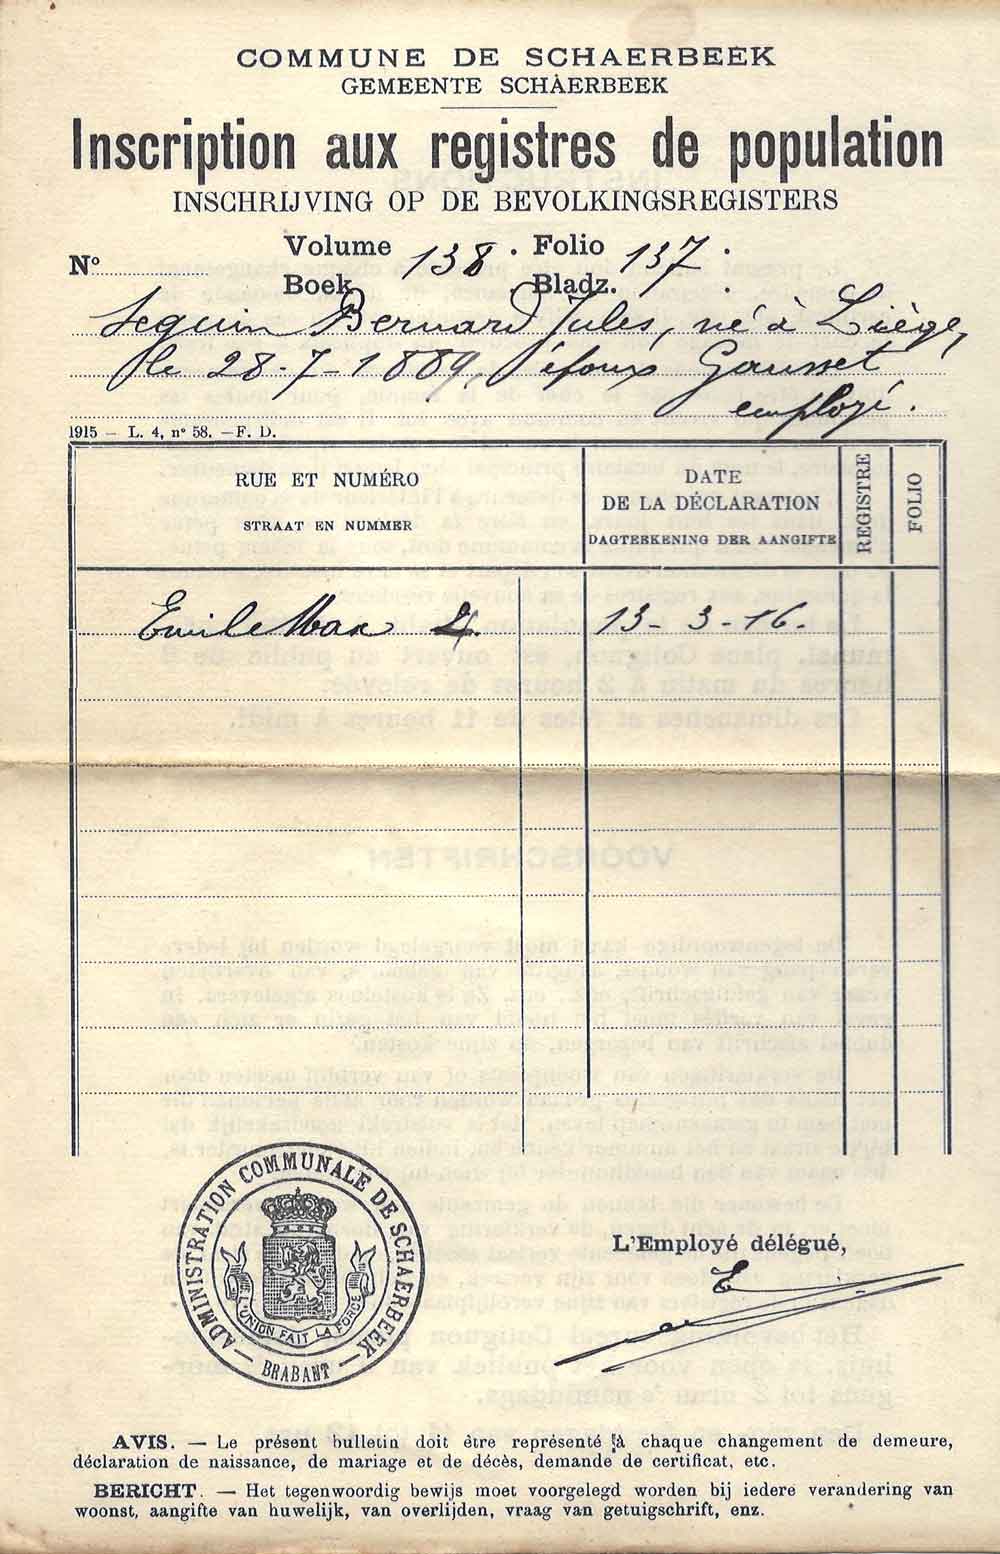 COMMUNE DE SCHAERBEEK
GEMEENTE SCHAERBEEK
Inscription aux registres de population
INSCHRIJVING OP DE BEVOLKINGSREGISTERS
N° Volume 138. Folio 137.
Boek Bladz.
Seguin Bernard Jules, né à Liège,
le 28-7-1889, époux Gausset
employé.
1915 — L. 4, n° 58. — F. D.
RUE ET NUMÉRO
STRAAT EN NUMMER
DATE
DE LA DÉCLARATION
DAGTEEKENING DER AANGIFTE
REGISTRE
FOLIO
Emile Max 2. 13-3-16.
ADMINISTRATION COMMUNALE DE SCHAERBEEK
L'UNION FAIT LA FORCE
— BRABANT —
L'Employé délégué,
AVIS. — Le présent bulletin doit être représenté à chaque changement de demeure,
déclaration de naissance, de mariage et de décès, demande de certificat, etc.
BERICHT. — Het tegenwoordig bewijs moet voorgelegd worden bij iedere verandering van
woonst, aangifte van huwelijk, van overlijden, vraag van getuigschrift, enz.